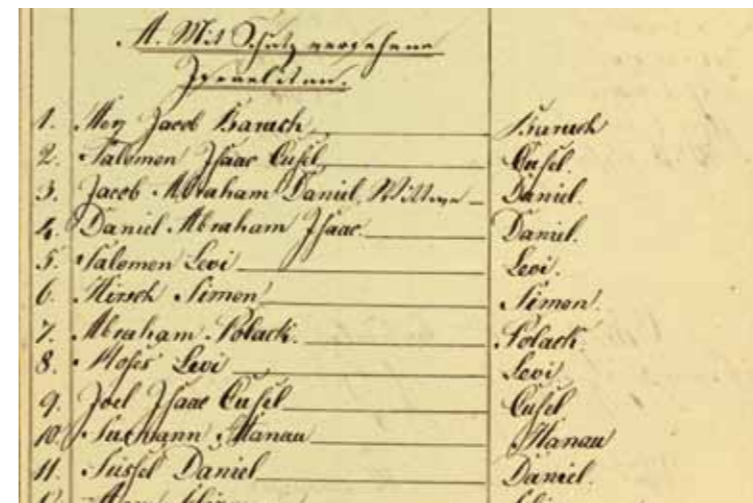 A. Mit Schutz versehene
Israeliten.
1. Mey Jacob Baruch Baruch
2. Salomon Isaac Cusel Cusel.
3. Jacob Abraham Daniel, Wittwe Daniel.
4. Daniel Abraham Isaac. Daniel.
5. Salomon Levi Levi.
6. Hirsch Simon Simon.
7. Abraham Polack. Polack.
8. Moses Levi Levi.
9. Joel Isaac Cusel Cusel
10. Hanau Hanau
11. Süssel Daniel Daniel.